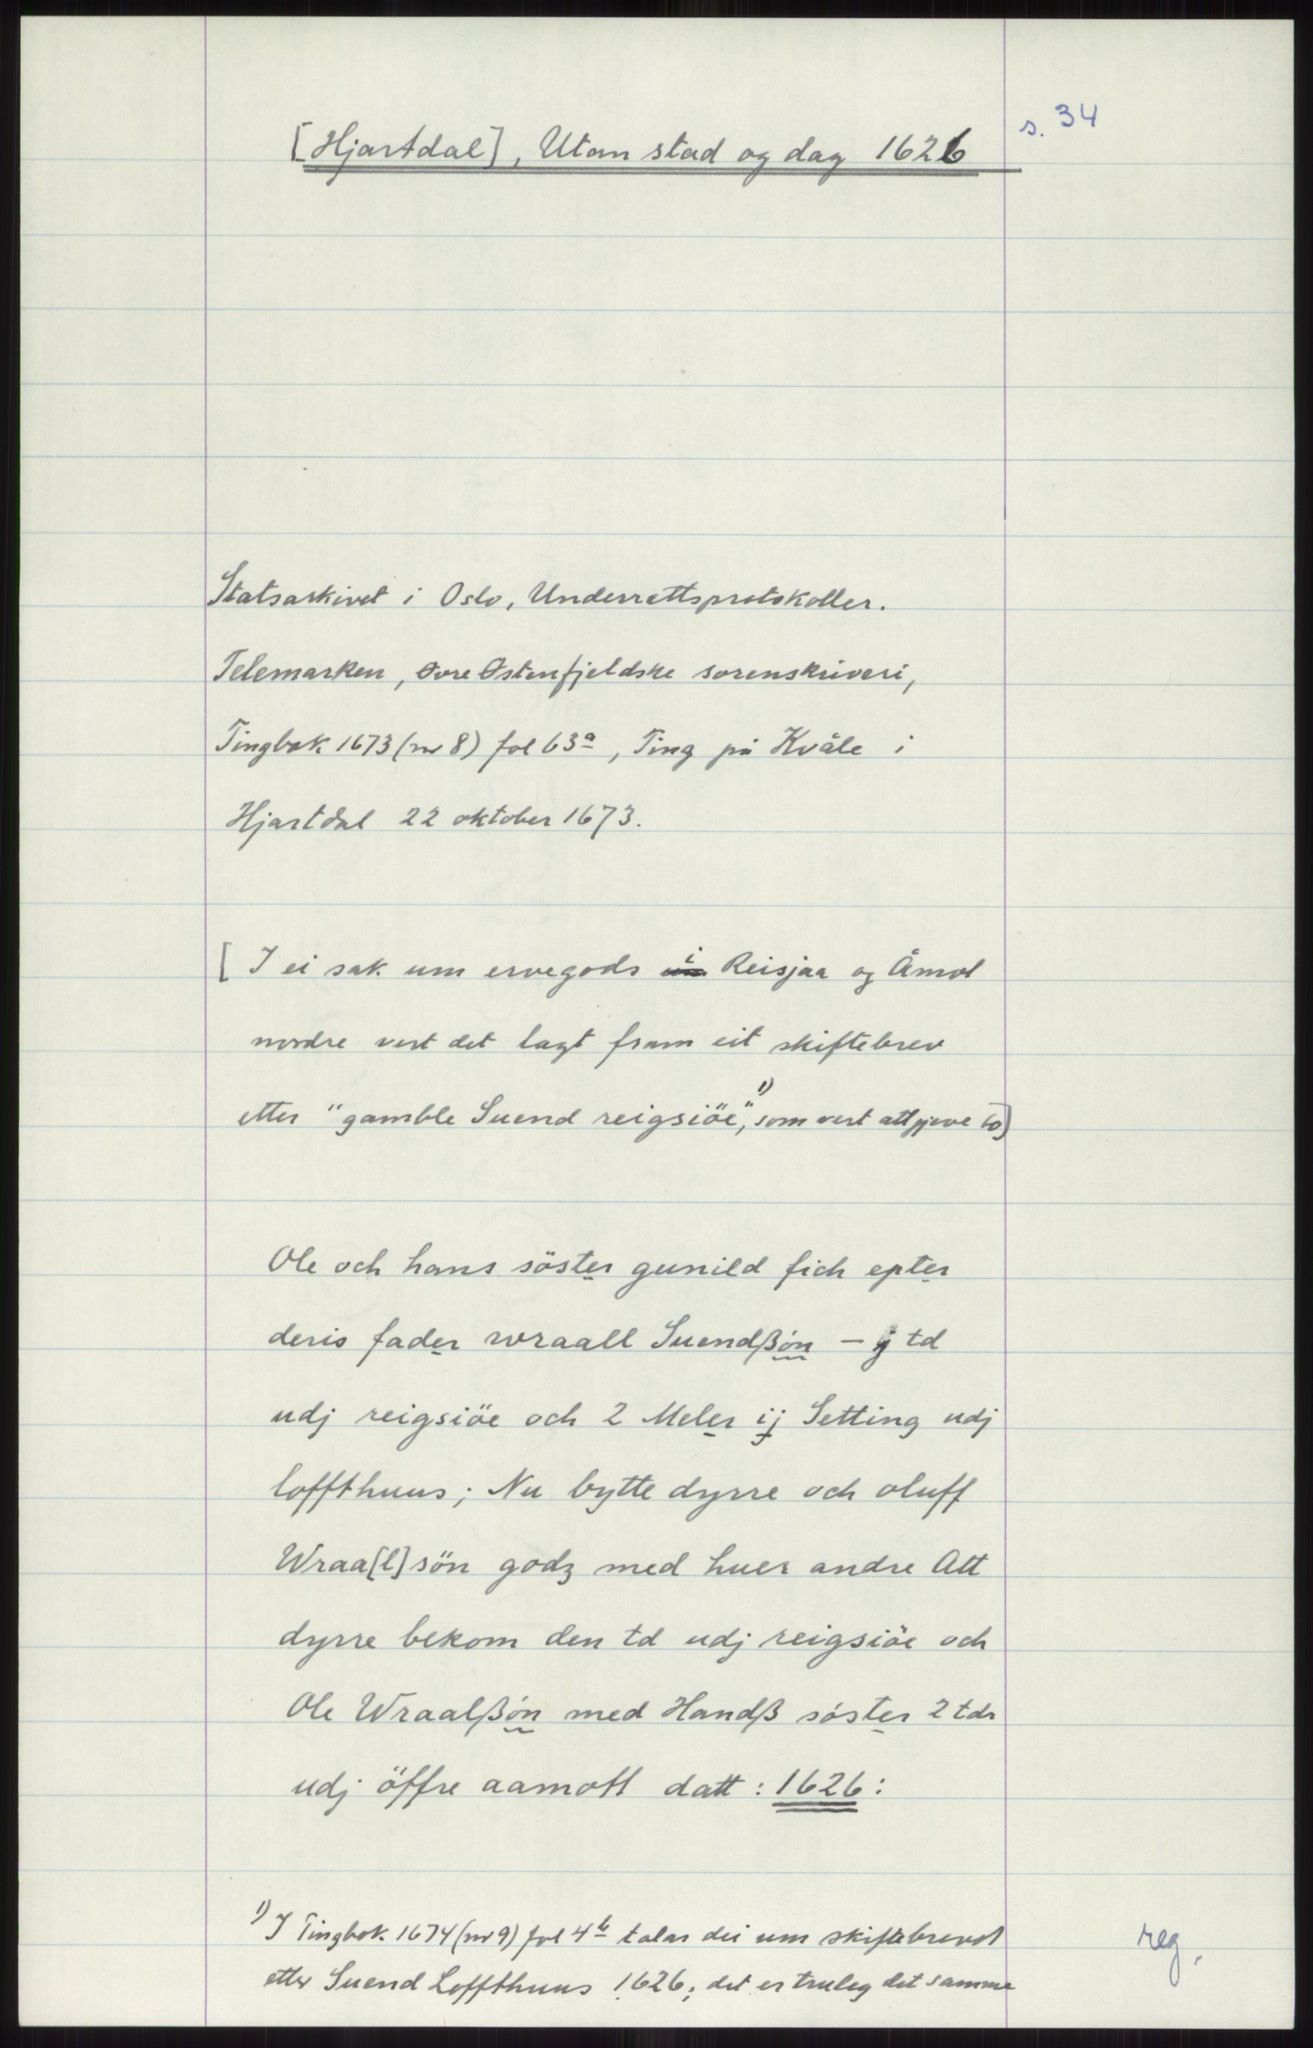 s. 34
[Hjartdal], Utan stad og dag 1626
Statsarkivet i Oslo, Underrettsprotokoller.
Telemarken, Øvre Østenfjeldske sorenskriveri,
Tingbok 1673 (nr 8) fol 63a, Ting på Kvåle i
Hjartdal 22 oktober 1673.
[I ei sak um ervegods i Reisjaa og Åmot
nordre vert det lagt fram eit skiftebrev
etter "gamble Suend reigsiöe",1) som vert attgjeve so]
Ole och hans söster gunild fich epter
deris fader wraall Suendßön – j td
udj reigsiöe och 2 Meler ij Setting udj
loffthuus; Nu bytte dyrre och oluff
Wraa[l]sön godz med huer andre Att
dyrre bekom den td udj reigsiöe och
Ole Wraalßön med Handß söster 2 tdr
udj öffre aamott datt: 1626:
1) I Tingbok 1674 (nr 9) fol 4b talar dei um skiftebrevet
etter Suend Loffthuus 1626; det er truleg det samme
reg.